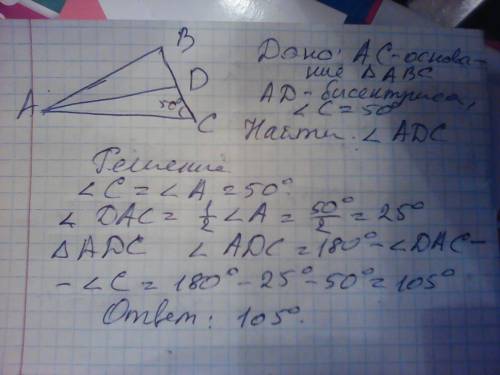 B
D
A
50°
C
Дано: AC-основа-
ние ΔABC
AD-бисектриса,
∠C=50°
Найти: ∠ADC
Решение
∠C=∠A=50°
∠DAC=1/2∠A=50°/2=25°
ΔADC ∠ADC=180°-∠DAC-
-∠C=180°-25°-50°=105°
Ответ: 105°.